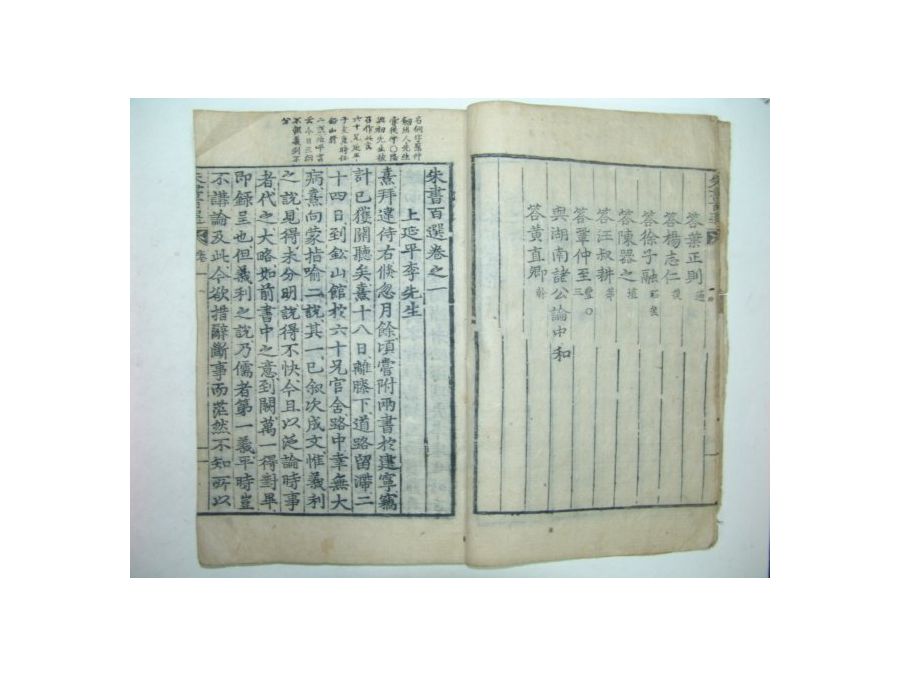 答葉正則適
答楊志仁復
答徐子融
答陳器之埴
答汪叔耕莘
答鞏仲至豐〇三
與湖南諸公論中和
答黃直卿榦
朱書百選卷之一
上延平李先生
熹拜違侍右倐忽月餘頃嘗附兩書於建寧竊
計已獲關聽矣熹十八日離膝下道路留滯二
十四日到鈆山館於六十兄官舍路中幸無大
病熹向蒙指喻二說其一已叙次成文惟義利
之說見得未分明說得不快今且以泛論時事
者代之大略如前書中之意到闕萬一得對畢
即錄呈也但義利之說乃儒者第一義平時豈
不講論及此今欲措辭斷事而茫然不知所以